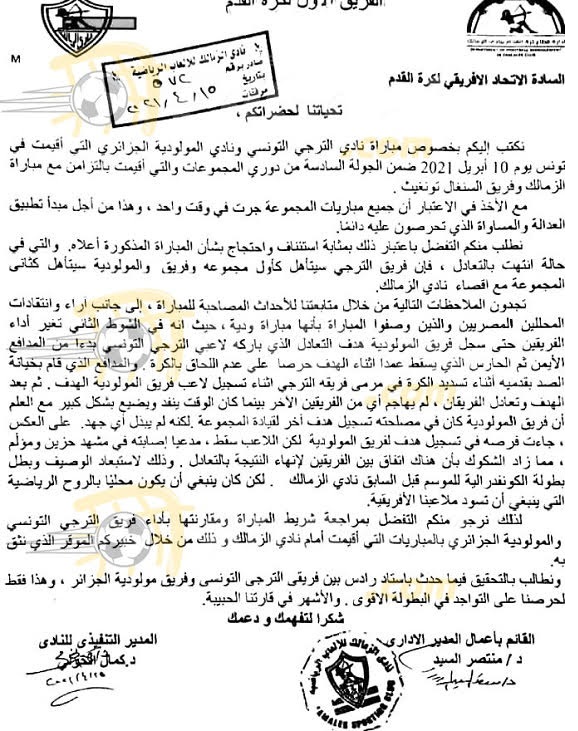 الفريق الأول لكرة القدم
السادة الاتحاد الافريقي لكرة القدم
M
نادي الزمالك للألعاب الرياضية
صادر برقم ٥٧٢
بتاريخ ٢٠٢١/٤/١٥
مرفقات
تحياتنا لحضراتكم ،
نكتب إليكم بخصوص مباراة نادي الترجي التونسي ونادي المولودية الجزائري التي أقيمت في
تونس يوم 10 أبريل 2021 ضمن الجولة السادسة من دوري المجموعات والتي أقيمت بالتزامن مع مباراة
الزمالك وفريق السنغال تونغيث .
مع الأخذ في الاعتبار أن جميع مباريات المجموعة جرت في وقت واحد ، وهذا من أجل مبدأ تطبيق
العدالة والمساواة الذي تحرصون عليه دائمًا.
نطلب منكم التفضل باعتبار ذلك بمثابة استئناف واحتجاج بشأن المباراة المذكورة أعلاه. والتي في
حالة انتهت بالتعادل ، فإن فريق الترجي سيتأهل كأول مجموعه وفريق والمولودية سيتأهل كثانى
المجموعة مع اقصاء نادي الزمالك.
تجدون الملاحظات التالية من خلال متابعتنا للأحداث المصاحبة للمباراة ، إلى جانب أراء وانتقادات
المحللين المصريين والذين وصفوا المباراة بأنها مباراة ودية ، حيث انه في الشوط الثاني تغير أداء
الفريقين حتى سجل فريق المولودية هدف التعادل الذي باركه لاعبي الترجي التونسي بدءا من المدافع
الأيمن ثم الحارس الذي يسقط عمدا اثناء الهدف حرصا على عدم اللحاق بالكرة . والمدافع الذي قام بخيانة
الصد بقدميه أثناء تسديد الكرة في مرمى فريقه الترجي اثناء تسجيل لاعب فريق المولودية الهدف . ثم بعد
الهدف وتعادل الفريقان ، لم يهاجم أي من الفريقين الآخر بينما كان الوقت ينفد ويضيع بشكل كبير مع العلم
أن فريق المولودية كان في مصلحته تسجيل هدف أخر لقيادة المجموعة .لكنه لم يبذل أي جهد. على العكس
، جاءت فرصه في تسجيل هدف لفريق المولودية لكن اللاعب سقط ، مدعيا إصابته في مشهد حزين ومؤلم
، مما زاد الشكوك بأن هناك اتفاق بين الفريقين لإنهاء النتيجة بالتعادل . وذلك لاستبعاد الوصيف وبطل
بطولة الكونفدرالية للموسم قبل السابق نادي الزمالك . لكن كان ينبغي أن يكون محليًا بالروح الرياضية
التي ينبغي أن تسود ملاعبنا الأفريقية.
لذلك نرجو منكم التفضل بمراجعة شريط المباراة ومقارنتها بأداء فريق الترجي التونسي
والمولودية الجزائري بالمباريات التي أقيمت أمام نادي الزمالك و ذلك من خلال خبيركم الموقر الذي نثق
به.
ونطالب بالتحقيق فيما حدث بإستاد رادس بين فريقى الترجى التونسى وفريق مولودية الجزائر ، وهذا فقط
لحرصنا على التواجد في البطولة الاقوى . والأشهر في قارتنا الحبيبة.
شكرا لتفهمك و دعمك
القائم بأعمال المدير الادارى
د / منتصر السيد
المدير التنفيذى للنادى
د.كمال
نادى الزمالك للألعاب الرياضية
ZAMALEK SPORTING CLUB
.com
.com
.com